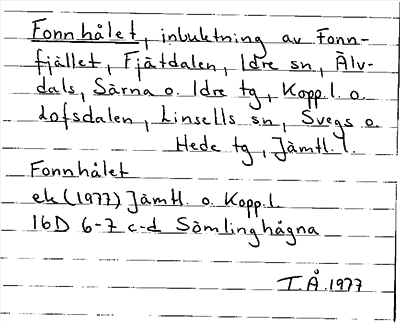 Fonnhålet, inbuktning av Fonn-
fjället, Fjätdalen, Idre sn, Älv-
dals, Särna o. Idre tg, Kopp.l. o.
Lofsdalen, Linsells sn, Svegs o.
Hede tg, Jämtl. l.
Fonnhålet
ek (1977) Jämtl. o. Kopp.l
16D 6-7 c-d Sömlinghågna
T.Å. 1977